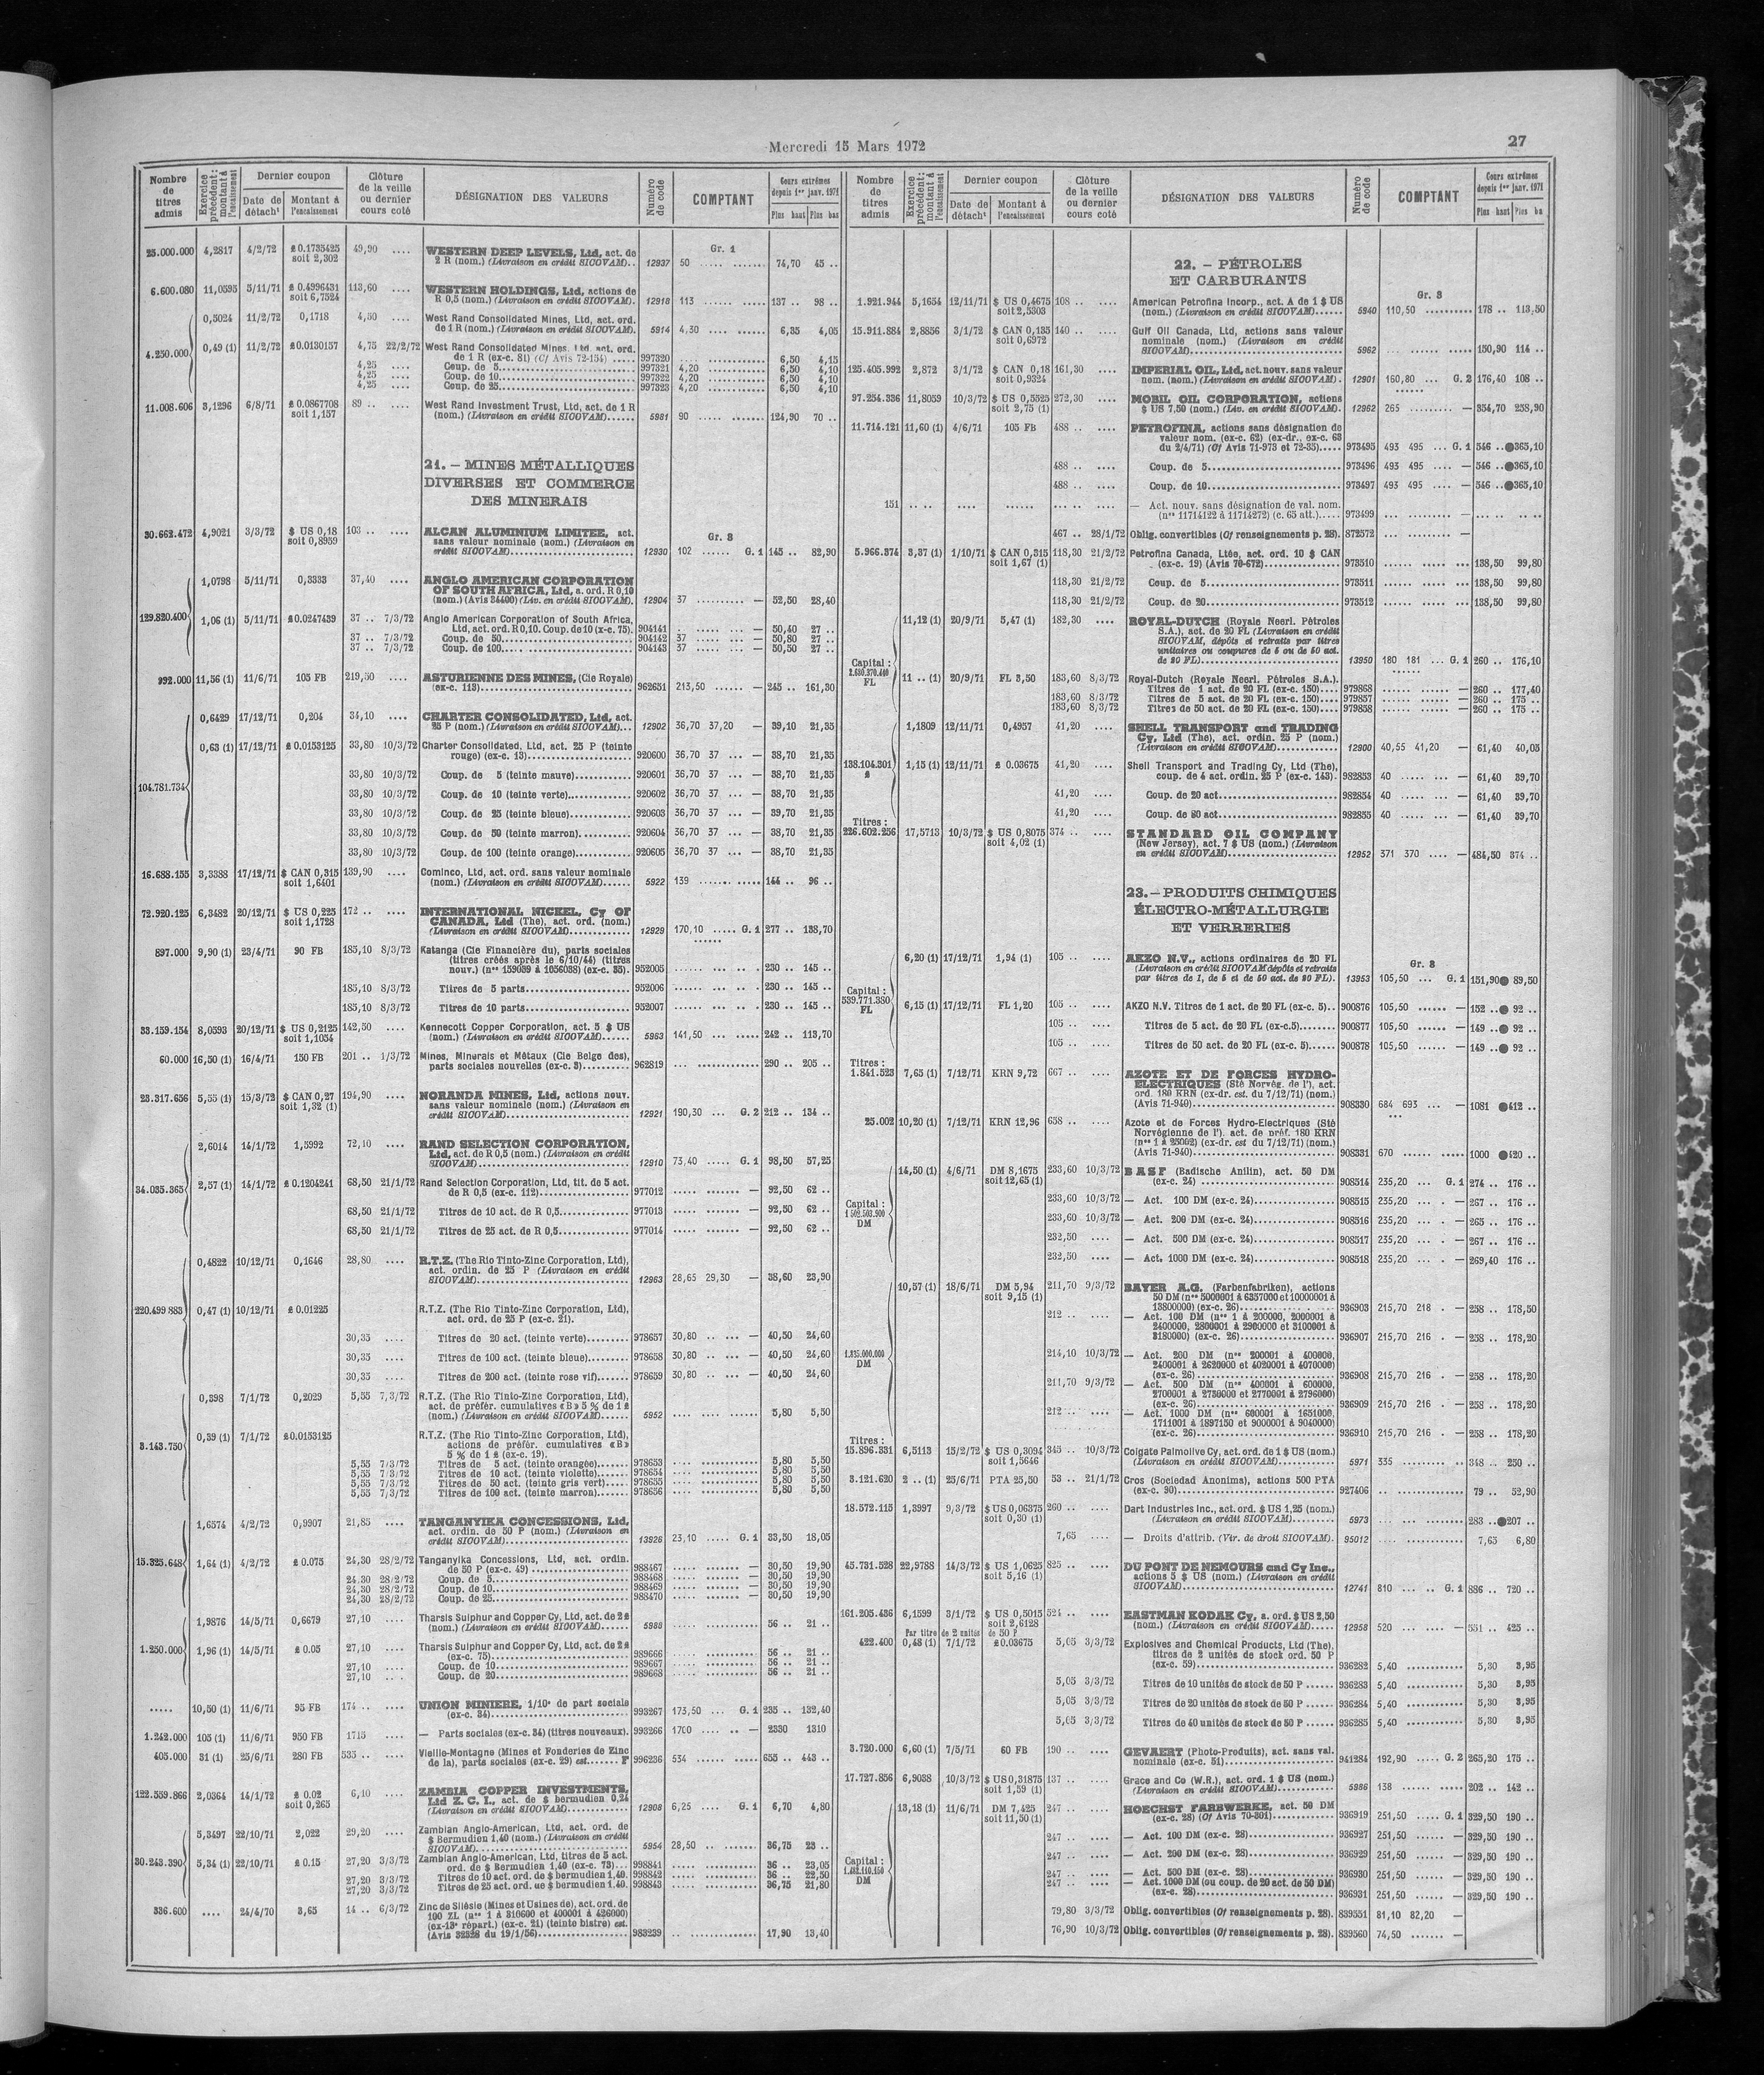 Mercredi 15 Mars 1972
27
Nombre de titres admis | Exercice précédent : montant à l'encaissement | Dernier coupon | Date de détacht | Montant à l'encaissement | Clôture de la veille ou dernier cours coté | DÉSIGNATION DES VALEURS | Numéro de code | COMPTANT | Cours extrêmes depuis 1er janv. 1971 | Plus haut | Plus bas
Gr. 1
25.000.000 4,2817 4/2/72 £ 0.1735425 49,90 .... WESTERN DEEP LEVELS, Ltd, act. de
soit 2,302 2 R (nom.) (Livraison en crédit SICOVAM).. 12937 50 ..... ....... 74,70 45 ..
6.600.080 11,0595 5/11/71 £ 0.4996431 113,60 .... WESTERN HOLDINGS, Ltd, actions de
soit 6,7524 R 0,5 (nom.) (Livraison en crédit SICOVAM). 12918 113 ...... ..... 137 .. 98 ..
0,5024 11/2/72 0,1718 4,50 .... West Rand Consolidated Mines, Ltd, act. ord.
de 1 R (nom.) (Livraison en crédit SICOVAM). 5914 4,30 .... ....... 6,35 4,05
4.250.000 0,49 (1) 11/2/72 £0.0130157 4,75 22/2/72 West Rand Consolidated Mines, Ltd, act. ord.
de 1 R (ex-c. 81) (Cf Avis 72-154) ..... 997320 .... ............ 6,50 4,15
4,25 .... Coup. de 5 997321 4,20 ............ 6,50 4,10
4,25 .... Coup. de 10 997322 4,20 ............ 6,50 4,10
4,25 .... Coup. de 25 997323 4,20 ............ 6,50 4,10
11.008.606 3,1296 6/8/71 £ 0.0867708 89 .. .... West Rand Investment Trust, Ltd, act. de 1 R
soit 1,157 (nom.) (Livraison en crédit SICOVAM)...... 5981 90 ..... ....... 124,90 70 ..
21. — MINES MÉTALLIQUES
DIVERSES ET COMMERCE
DES MINERAIS
Gr. 3
30.662.472 4,9021 3/3/72 $ US 0,18 103 .. .... ALCAN ALUMINIUM LIMITEE, act.
soit 0,8959 sans valeur nominale (nom.) (Livraison en
crédit SICOVAM) 12930 102 ...... G. 1 145 .. 82,90
1,0798 5/11/71 0,3333 37,40 .... ANGLO AMERICAN CORPORATION
OF SOUTH AFRICA, Ltd, a. ord. R 0,10
(nom.) (Avis 34400) (Liv. en crédit SICOVAM). 12904 37 .......... — 52,50 28,40
129.820.400 1,06 (1) 5/11/71 £0.0247439 37 .. 7/3/72 Anglo American Corporation of South Africa,
Ltd, act. ord. R 0,10. Coup. de 10 (x-c. 75). 904141 . ..... ... — 50,40 27 ..
37 .. 7/3/72 Coup. de 50 904142 37 ..... ... — 50,80 27 ..
37 .. 7/3/72 Coup. de 100 904143 37 ..... ... — 50,50 27 ..
992.000 11,56 (1) 11/6/71 105 FB 219,50 .... ASTURIENNE DES MINES, (Cie Royale)
(ex-c. 113) 962651 213,50 ...... — 245 .. 161,30
0,6429 17/12/71 0,204 34,10 .... CHARTER CONSOLIDATED, Ltd, act.
25 P (nom.) (Livraison en crédit SICOVAM)... 12902 36,70 37,20 — 39,10 21,35
0,63 (1) 17/12/71 £ 0.0153125 33,80 10/3/72 Charter Consolidated, Ltd, act. 25 P (teinte
rouge) (ex-c. 13) 920600 36,70 37 ... — 38,70 21,35
33,80 10/3/72 Coup. de 5 (teinte mauve) 920601 36,70 37 ... — 38,70 21,35
104.781.734
33,80 10/3/72 Coup. de 10 (teinte verte) 920602 36,70 37 ... — 38,70 21,35
33,80 10/3/72 Coup. de 25 (teinte bleue) 920603 36,70 37 ... — 39,70 21,35
33,80 10/3/72 Coup. de 50 (teinte marron) 920604 36,70 37 ... — 38,70 21,35
33,80 10/3/72 Coup. de 100 (teinte orange) 920605 36,70 37 ... — 38,70 21,35
16.688.155 3,3388 17/12/71 $ CAN 0,315 139,90 .... Cominco, Ltd, act. ord. sans valeur nominale
soit 1,6401 (nom.) (Livraison en crédit SICOVAM)...... 5922 139 ....... ..... 144 .. 96 ..
72.920.125 6,3482 20/12/71 $ US 0,225 172 .. .... INTERNATIONAL NICKEL, Cy OF
soit 1,1728 CANADA, Ltd (The), act. ord. (nom.)
(Livraison en crédit SICOVAM) 12929 170,10 ..... G. 1 277 .. 138,70
897.000 9,90 (1) 23/4/71 90 FB 185,10 8/3/72 Katanga (Cie Financière du), parts sociales
(titres créés après le 6/10/44) (titres
nouv.) (nos 159089 à 1056038) (ex-c. 35). 952005 ...... ... .. . 230 .. 145 ..
185,10 8/3/72 Titres de 5 parts 952006 ...... ... .. . 230 .. 145 ..
185,10 8/3/72 Titres de 10 parts 952007 ...... ... .. . 230 .. 145 ..
33.159.154 8,0593 20/12/71 $ US 0,2125 142,50 .... Kennecott Copper Corporation, act. 5 $ US
soit 1,1054 (nom.) (Livraison en crédit SICOVAM)...... 5963 141,50 ... ..... 242 .. 113,70
60.000 16,50 (1) 16/4/71 150 FB 201 .. 1/3/72 Mines, Minerais et Métaux (Cie Belge des),
parts sociales nouvelles (ex-c. 3) 962819 ... ............. 290 .. 205 ..
23.317.656 5,55 (1) 15/3/72 $ CAN 0,27 194,90 .... NORANDA MINES, Ltd, actions nouv.
soit 1,32 (1) sans valeur nominale (nom.) (Livraison en
crédit SICOVAM) 12921 190,30 ... G. 2 212 .. 134 ..
2,6014 14/1/72 1,5992 72,10 .... RAND SELECTION CORPORATION,
Ltd, act. de R 0,5 (nom.) (Livraison en crédit
SICOVAM) 12910 73,40 ..... G. 1 98,50 57,25
34.035.365 2,57 (1) 14/1/72 £ 0.1204241 68,50 21/1/72 Rand Selection Corporation, Ltd, tit. de 5 act.
de R 0,5 (ex-c. 112) 977012 ..... ....... — 92,50 62 ..
68,50 21/1/72 Titres de 10 act. de R 0,5 977013 ..... ....... — 92,50 62 ..
68,50 21/1/72 Titres de 25 act. de R 0,5 977014 ..... ....... — 92,50 62 ..
0,4822 10/12/71 0,1646 28,80 .... R.T.Z. (The Rio Tinto-Zinc Corporation, Ltd),
act. ordin. de 25 P (Livraison en crédit
SICOVAM) 12963 28,65 29,30 — 38,60 23,90
220.499 883 0,47 (1) 10/12/71 £ 0.01225 R.T.Z. (The Rio Tinto-Zinc Corporation, Ltd),
act. ord. de 25 P (ex-c. 21).
30,35 .... Titres de 20 act. (teinte verte) 978657 30,80 .. ... — 40,50 24,60
30,35 .... Titres de 100 act. (teinte bleue) 978658 30,80 .. ... — 40,50 24,60
30,35 .... Titres de 200 act. (teinte rose vif) 978659 30,80 .. ... — 40,50 24,60
0,398 7/1/72 0,2029 5,55 7,3/72 R.T.Z. (The Rio Tinto-Zinc Corporation, Ltd),
act. de préfér. cumulatives «B» 5 % de 1 £
(nom.) (Livraison en crédit SICOVAM)...... 5952 .... ..... ...... 5,80 5,50
3.143.750 0,39 (1) 7/1/72 £0.0153125 R.T.Z. (The Rio Tinto-Zinc Corporation, Ltd),
actions de préfér. cumulatives «B»
5 % de 1 £ (ex-c. 19).
5,55 7/3/72 Titres de 5 act. (teinte orangée) 978653 .... ............ 5,80 5,50
5,55 7/3/72 Titres de 10 act. (teinte violette) 978654 .... ............ 5,80 5,50
5,55 7/3/72 Titres de 50 act. (teinte gris vert) 978655 .... ............ 5,80 5,50
5,55 7,3/72 Titres de 100 act. (teinte marron) 978656 .... ............ 5,80 5,50
1,6574 4/2/72 0,9907 21,85 .... TANGANYIKA CONCESSIONS, Ltd,
act. ordin. de 50 P (nom.) (Livraison en
crédit SICOVAM) 13926 23,10 ..... G. 1 33,50 18,05
15.325.648 1,64 (1) 4/2/72 £ 0.075 24,30 28/2/72 Tanganyika Concessions, Ltd, act. ordin.
de 50 P (ex-c. 49) 988467 ..... ....... — 30,50 19,90
24,30 28/2/72 Coup. de 5 988468 ..... ....... — 30,50 19,90
24,30 28/2/72 Coup. de 10 988469 ..... ....... — 30,50 19,90
24,30 28/2/72 Coup. de 25 988470 ..... ....... — 30,50 19,90
1,9876 14/5/71 0,6679 27,10 .... Tharsis Sulphur and Copper Cy, Ltd, act. de 2 £
(nom.) (Livraison en crédit SICOVAM)...... 5988 .... ............ 56 .. 21 ..
1.250.000 1,96 (1) 14/5/71 £ 0.05 27,10 .... Tharsis Sulphur and Copper Cy, Ltd, act. de 2 £
(ex-c. 75) 989666 ..... ........... 56 .. 21 ..
27,10 .... Coup. de 10 989667 ..... ........... 56 .. 21 ..
27,10 .... Coup. de 20 989668 ..... ........... 56 .. 21 ..
..... 10,50 (1) 11/6/71 95 FB 174 .. .... UNION MINIERE, 1/10e de part sociale
(ex-c. 34) 993267 173,50 ... G. 1 235 .. 132,40
1.242.000 105 (1) 11/6/71 950 FB 1715 .... — Parts sociales (ex-c. 34) (titres nouveaux). 993266 1700 .... .. — 2330 1310
405.000 31 (1) 25/6/71 280 FB 535 .. .... Vieille-Montagne (Mines et Fonderies de Zinc
de la), parts sociales (ex-c. 29) est....... F 996236 534 ...... ..... 655 .. 443 ..
122.559.866 2,0364 14/1/72 £ 0.02 6,10 .... ZAMBIA COPPER INVESTMENTS,
soit 0,265 Ltd Z. C. I., act. de $ bermudien 0,24
(Livraison en crédit SICOVAM) 12908 6,25 .... G. 1 6,70 4,80
5,3497 22/10/71 2,022 29,20 .... Zambian Anglo-American, Ltd, act. ord. de
$ Bermudien 1,40 (nom.) (Livraison en crédit
SICOVAM) 5954 28,50 .. ........ 36,75 23 ..
30.243.390 5,34 (1) 22/10/71 £ 0.15 27,20 3/3/72 Zambian Anglo-American, Ltd, titres de 5 act.
ord. de $ Bermudien 1,40 (ex-c. 73)... 998841 ..... ........... 36 .. 23,05
27,20 3/3/72 Titres de 10 act. ord. de $ bermudien 1,40. 998842 ..... ........... 36 .. 22,50
27,20 3/3/72 Titres de 25 act. ord. de $ bermudien 1,40. 998843 ..... ........... 36,75 21,80
336.600 .... 24/4/70 3,65 14 .. 6/3/72 Zinc de Silésie (Mines et Usines de), act. ord. de
100 ZL (nos 1 à 310600 et 400001 à 426000)
(ex-13e répart.) (ex-c. 21) (teinte bistre) est.
(Avis 32328 du 19/1/56) 983239 .. ............ 17,90 13,40
Nombre de titres admis | Exercice précédent : montant à l'encaissement | Dernier coupon | Date de détacht | Montant à l'encaissement | Clôture de la veille ou dernier cours coté | DÉSIGNATION DES VALEURS | Numéro de code | COMPTANT | Cours extrêmes depuis 1er janv. 1971 | Plus haut | Plus ba
22. — PÉTROLES
ET CARBURANTS
Gr. 3
1.921.944 5,1654 12/11/71 $ US 0,4675 108 .. .... American Petrofina Incorp., act. A de 1 $ US
soit 2,5303 (nom.) (Livraison en crédit SICOVAM)...... 5940 110,50 .......... 178 .. 113,50
15.911.884 2,8856 3/1/72 $ CAN 0,135 140 .. .... Gulf Oil Canada, Ltd, actions sans valeur
soit 0,6972 nominale (nom.) (Livraison en crédit
SICOVAM) 5962 ... ...... ..... 150,90 114 ..
125.405.992 2,872 3/1/72 $ CAN 0,18 161,30 .... IMPERIAL OIL, Ltd, act. nouv. sans valeur
soit 0,9324 nom. (nom.) (Livraison en crédit SICOVAM) . 12901 160,80 ... G. 2 176,40 108 ..
97.254.336 11,8059 10/3/72 $ US 0,5525 272,30 .... MOBIL OIL CORPORATION, actions
soit 2,75 (1) $ US 7,50 (nom.) (Liv. en crédit SICOVAM).. 12962 265 ......... — 334,70 258,90
11.714.121 11,60 (1) 4/6/71 105 FB 488 .. .... PETROFINA, actions sans désignation de
valeur nom. (ex-c. 62) (ex-dr., ex-c. 63
du 2/4/71) (Cf Avis 71-973 et 72-35)..... 973495 493 495 ... G. 1 546 ..●365,10
488 .. .... Coup. de 5 973496 493 495 .... — 546 ..●365,10
488 .. .... Coup. de 10 973497 493 495 .... — 546 ..●365,10
151 .. .. .... ...... ... .. .... — Act. nouv. sans désignation de val. nom.
(nos 11714122 à 11714272) (c. 65 att.)..... 973499 ... ......... — ... .. .. ..
467 .. 28/1/72 Oblig. convertibles (Cf renseignements p. 28). 872572 ... ......... —
5.966.374 3,37 (1) 1/10/71 $ CAN 0,315 118,30 21/2/72 Petrofina Canada, Ltée, act. ord. 10 $ CAN
soit 1,67 (1) (ex-c. 19) (Avis 70-672) 973510 ...... ..... ... 138,50 99,80
118,30 21/2/72 Coup. de 5 973511 ...... ..... ... 138,50 99,80
118,30 21/2/72 Coup. de 20 973512 ...... ..... ... 138,50 99,80
11,12 (1) 20/9/71 5,47 (1) 182,30 .... ROYAL-DUTCH (Royale Neerl. Pétroles
S.A.), act. de 20 FL (Livraison en crédit
SICOVAM, dépôts et retraits par titres
unitaires ou coupures de 5 ou de 50 act.
de 20 FL) 13950 180 181 ... G. 1 260 .. 176,10
Capital :
2.680.370.460
FL
11 .. (1) 20/9/71 FL 3,50 183,60 8/3/72 Royal-Dutch (Royale Neerl. Pétroles S.A.).
Titres de 1 act. de 20 FL (ex-c. 150).... 979868 ...... ...... — 260 .. 177,40
183,60 8/3/72 Titres de 5 act. de 20 FL (ex-c. 150).... 979857 ...... ...... — 260 .. 175 ..
183,60 8/3/72 Titres de 50 act. de 20 FL (ex-c. 150).... 979858 ...... ...... — 260 .. 175 ..
1,1809 12/11/71 0,4957 41,20 .... SHELL TRANSPORT and TRADING
Cy, Ltd (The), act. ordin. 25 P (nom.)
(Livraison en crédit SICOVAM) 12900 40,55 41,20 — 61,40 40,05
138.104.301 1,15 (1) 12/11/71 £ 0.03675 41,20 .... Shell Transport and Trading Cy, Ltd (The),
£ coup. de 4 act. ordin. 25 P (ex-c. 143). 982853 40 ..... ..... — 61,40 39,70
41,20 .... Coup. de 20 act. 982854 40 ..... ..... — 61,40 39,70
41,20 .... Coup. de 80 act. 982855 40 ..... ..... — 61,40 39,70
Titres :
226.602.256 17,5713 10/3/72 $ US 0,8075 374 .. .... STANDARD OIL COMPANY
soit 4,02 (1) (New Jersey), act. 7 $ US (nom.) (Livraison
en crédit SICOVAM) 12952 371 370 .... — 484,50 374 ..
23. — PRODUITS CHIMIQUES
ÉLECTRO-MÉTALLURGIE
ET VERRERIES
Gr. 3
6,20 (1) 17/12/71 1,94 (1) 105 .. .... AKZO N.V., actions ordinaires de 20 FL
(Livraison en crédit SICOVAM dépôts et retraits
par titres de 1, de 5 et de 50 act. de 20 FL). 13953 105,50 ... G. 1 151,90● 89,50
Capital :
539.771.380
FL
6,15 (1) 17/12/71 FL 1,20 105 .. .... AKZO N.V. Titres de 1 act. de 20 FL (ex-c. 5).. 900876 105,50 ...... — 152 ..● 92 ..
105 .. .... Titres de 5 act. de 20 FL (ex-c.5)...... 900877 105,50 ...... — 149 ..● 92 ..
105 .. .... Titres de 50 act. de 20 FL (ex-c. 5)...... 900878 105,50 ...... — 149 ..● 92 ..
Titres :
1.841.523 7,65 (1) 7/12/71 KRN 9,72 667 .. .... AZOTE ET DE FORCES HYDRO-
ELECTRIQUES (Sté Norvég. de l'), act.
ord. 180 KRN (ex-dr. est. du 7/12/71) (nom.)
(Avis 71-940) 908330 684 693 ... — 1081 ●412 ..
25.002 10,20 (1) 7/12/71 KRN 12,96 658 .. .... Azote et de Forces Hydro-Electriques (Sté
Norvégienne de l'). act. de préf. 180 KRN
(nos 1 à 25002) (ex-dr. est du 7/12/71) (nom.)
(Avis 71-940) 908331 670 ...... ..... 1000 ●420 ..
14,50 (1) 4/6/71 DM 8,1675 233,60 10/3/72 BASF (Badische Anilin), act. 50 DM
soit 12,65 (1) (ex-c. 24) 908514 235,20 ... G. 1 274 .. 176 ..
233,60 10/3/72 — Act. 100 DM (ex-c. 24) 908515 235,20 ... . — 267 .. 176 ..
Capital :
1 502.563.900
DM
233,60 10/3/72 — Act. 200 DM (ex-c. 24) 908516 235,20 ... . — 265 .. 176 ..
232,50 .... — Act. 500 DM (ex-c. 24) 908517 235,20 ... . — 267 .. 176 ..
232,50 .... — Act. 1000 DM (ex-c. 24) 908518 235,20 ... . — 269,40 176 ..
10,57 (1) 18/6/71 DM 5,94 211,70 9/3/72 BAYER A.G. (Farbenfabriken), actions
soit 9,15 (1) 50 DM (nos 5000001 à 6357000 et 10000001 à
13800000) (ex-c. 26) 936903 215,70 218 . — 258 .. 178,50
212 .. .... — Act. 100 DM (nos 1 à 200000, 2000001 à
2400000, 2800001 à 2900000 et 3100001 à
3180000) (ex-c. 26) 936907 215,70 216 . — 258 .. 178,20
1.835.000.000
DM
214,10 10/3/72 — Act. 200 DM (nos 200001 à 400000,
2400001 à 2620000 et 4020001 à 4070000)
(ex-c. 26) 936908 215,70 216 . — 258 .. 178,20
211,70 9/3/72 — Act. 500 DM (nos 400001 à 600000,
2700001 à 2750000 et 2770001 à 2796000)
(ex-c. 26) 936909 215,70 216 . — 258 .. 178,20
212 .. .... — Act. 1000 DM (nos 600001 à 1651000,
1711001 à 1897150 et 9000001 à 9040000)
(ex-c. 26) 936910 215,70 216 . — 258 .. 178,20
Titres :
15.896.331 6,5113 15/2/72 $ US 0,3094 345 .. 10/3/72 Colgate Palmolive Cy, act. ord. de 1 $ US (nom.)
soit 1,5646 (Livraison en crédit SICOVAM) 5971 335 ......... .. 348 .. 250 ..
3.121.620 2 .. (1) 25/6/71 PTA 25,50 53 .. 21/1/72 Cros (Sociedad Anonima), actions 500 PTA
(ex-c. 90) 927406 .. ............. 79 .. 52,90
18.572.115 1,3997 9/3/72 $ US 0,06375 260 .. .... Dart Industries Inc., act. ord. $ US 1,25 (nom.)
soit 0,30 (1) (Livraison en crédit SICOVAM) 5973 ... ............ 283 ..●207 ..
7,65 .... — Droits d'attrib. (Vir. de droit SICOVAM). 95012 .... ............ 7,65 6,80
45.731.528 22,9788 14/3/72 $ US 1,0625 825 .. .... DU PONT DE NEMOURS and Cy Inc.,
soit 5,16 (1) actions 5 $ US (nom.) (Livraison en crédit
SICOVAM) 12741 810 ... .. G. 1 886 .. 720 ..
161.205.436 6,1599 3/1/72 $ US 0,5015 524 .. .... EASTMAN KODAK Cy, a. ord. $ US 2,50
soit 2,6128 (nom.) (Livraison en crédit SICOVAM)...... 12958 520 .... .... — 551 .. 425 ..
Par titre de 2 unités de 50 P
422.400 0,48 (1) 7/1/72 £0.03675 5,05 3/3/72 Explosives and Chemical Products, Ltd (The),
titres de 2 unités de stock ord. 50 P
(ex-c. 59) 936282 5,40 ............ 5,30 3,95
5,05 3/3/72 Titres de 10 unités de stock de 50 P ...... 936283 5,40 ............ 5,30 3,95
5,05 3/3/72 Titres de 20 unités de stock de 50 P ...... 936284 5,40 ............ 5,30 3,95
5,05 3/3/72 Titres de 40 unités de stock de 50 P ...... 936285 5,40 ............ 5,30 3,95
3.720.000 6,60 (1) 7/5/71 60 FB 190 .. .... GEVAERT (Photo-Produits), act. sans val.
nominale (ex-c. 51) 941284 192,90 .... G. 2 265,20 175 ..
17.727.856 6,9038 10/3/72 $ US 0,31875 137 .. .... Grace and Co (W.R.), act. ord. 1 $ US (nom.)
soit 1,59 (1) (Livraison en crédit SICOVAM) 5986 138 ...... ..... 202 .. 142 ..
13,18 (1) 11/6/71 DM 7,425 247 .. .... HOECHST FARBWERKE, act. 50 DM
soit 11,50 (1) (ex-c. 28) (Cf Avis 70-301) 936919 251,50 ..... G. 1 329,50 190 ..
247 .. .... — Act. 100 DM (ex-c. 28) 936927 251,50 ..... — 329,50 190 ..
247 .. .... — Act. 200 DM (ex-c. 28) 936929 251,50 ..... — 329,50 190 ..
Capital :
1.482.110.450
DM
247 .. .... — Act. 500 DM (ex-c. 28) 936930 251,50 ..... — 329,50 190 ..
247 .. .... — Act. 1000 DM (ou coup. de 20 act. de 50 DM)
(ex-c. 28) 936931 251,50 ..... — 329,50 190 ..
79,80 3/3/72 Oblig. convertibles (Cf renseignements p. 28). 839551 81,10 82,20 —
76,90 10/3/72 Oblig. convertibles (Cf renseignements p. 28). 839560 74,50 ....... —